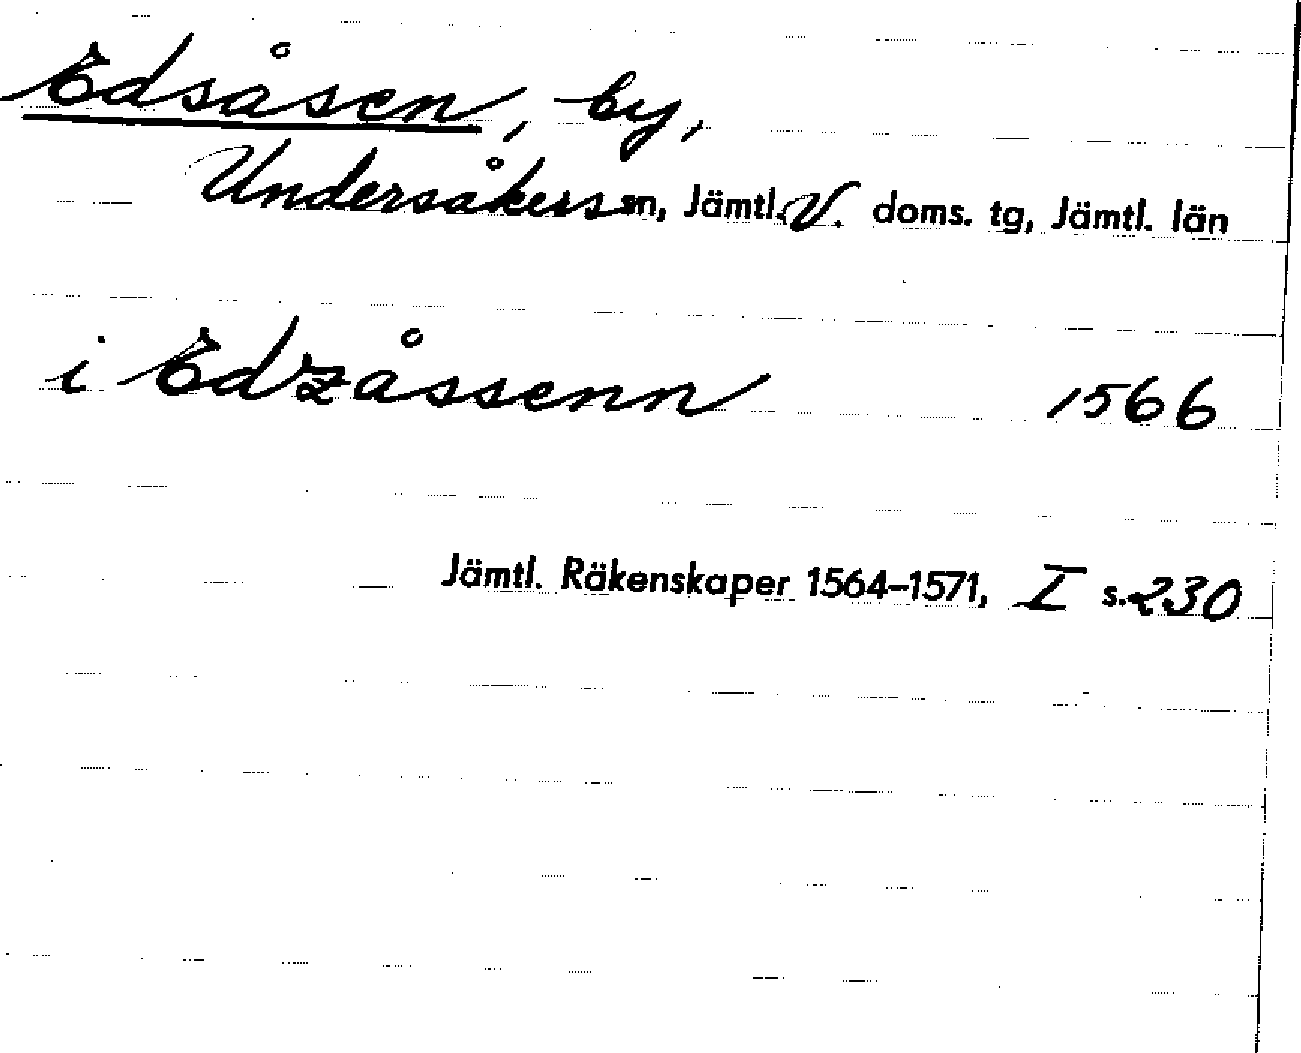 Edsåsen, by,
Undersåkers sn, Jämtl. V. doms. tg, Jämtl. län
i Edzåssenn 1566
Jämtl. Räkenskaper 1564–1571, I s. 230